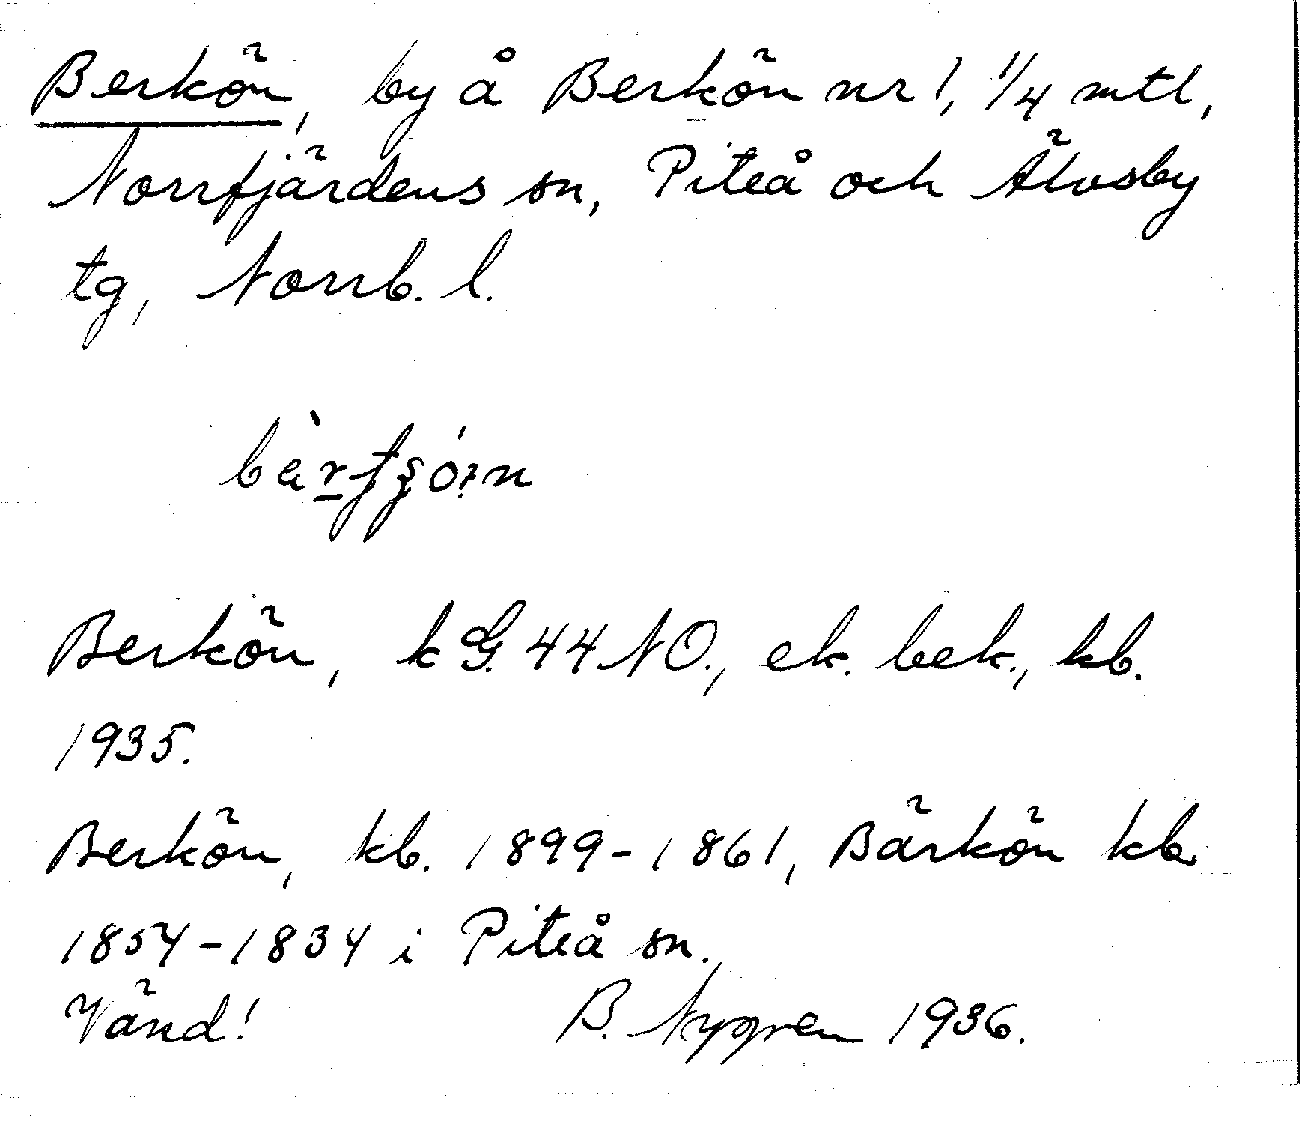 Berkön, by å Berkön nr 1, 1/4 mtl,
Norrfjärdens sn, Piteå och Älvsby
tg, Norrb. l.
Berkön, k G. 44 NO., ek. bek., kb.
1935.
Berkön, kb. 1899-1861, Bärkön kb.
1854-1834 i Piteå sn.
Vänd! B. Nygren 1936.